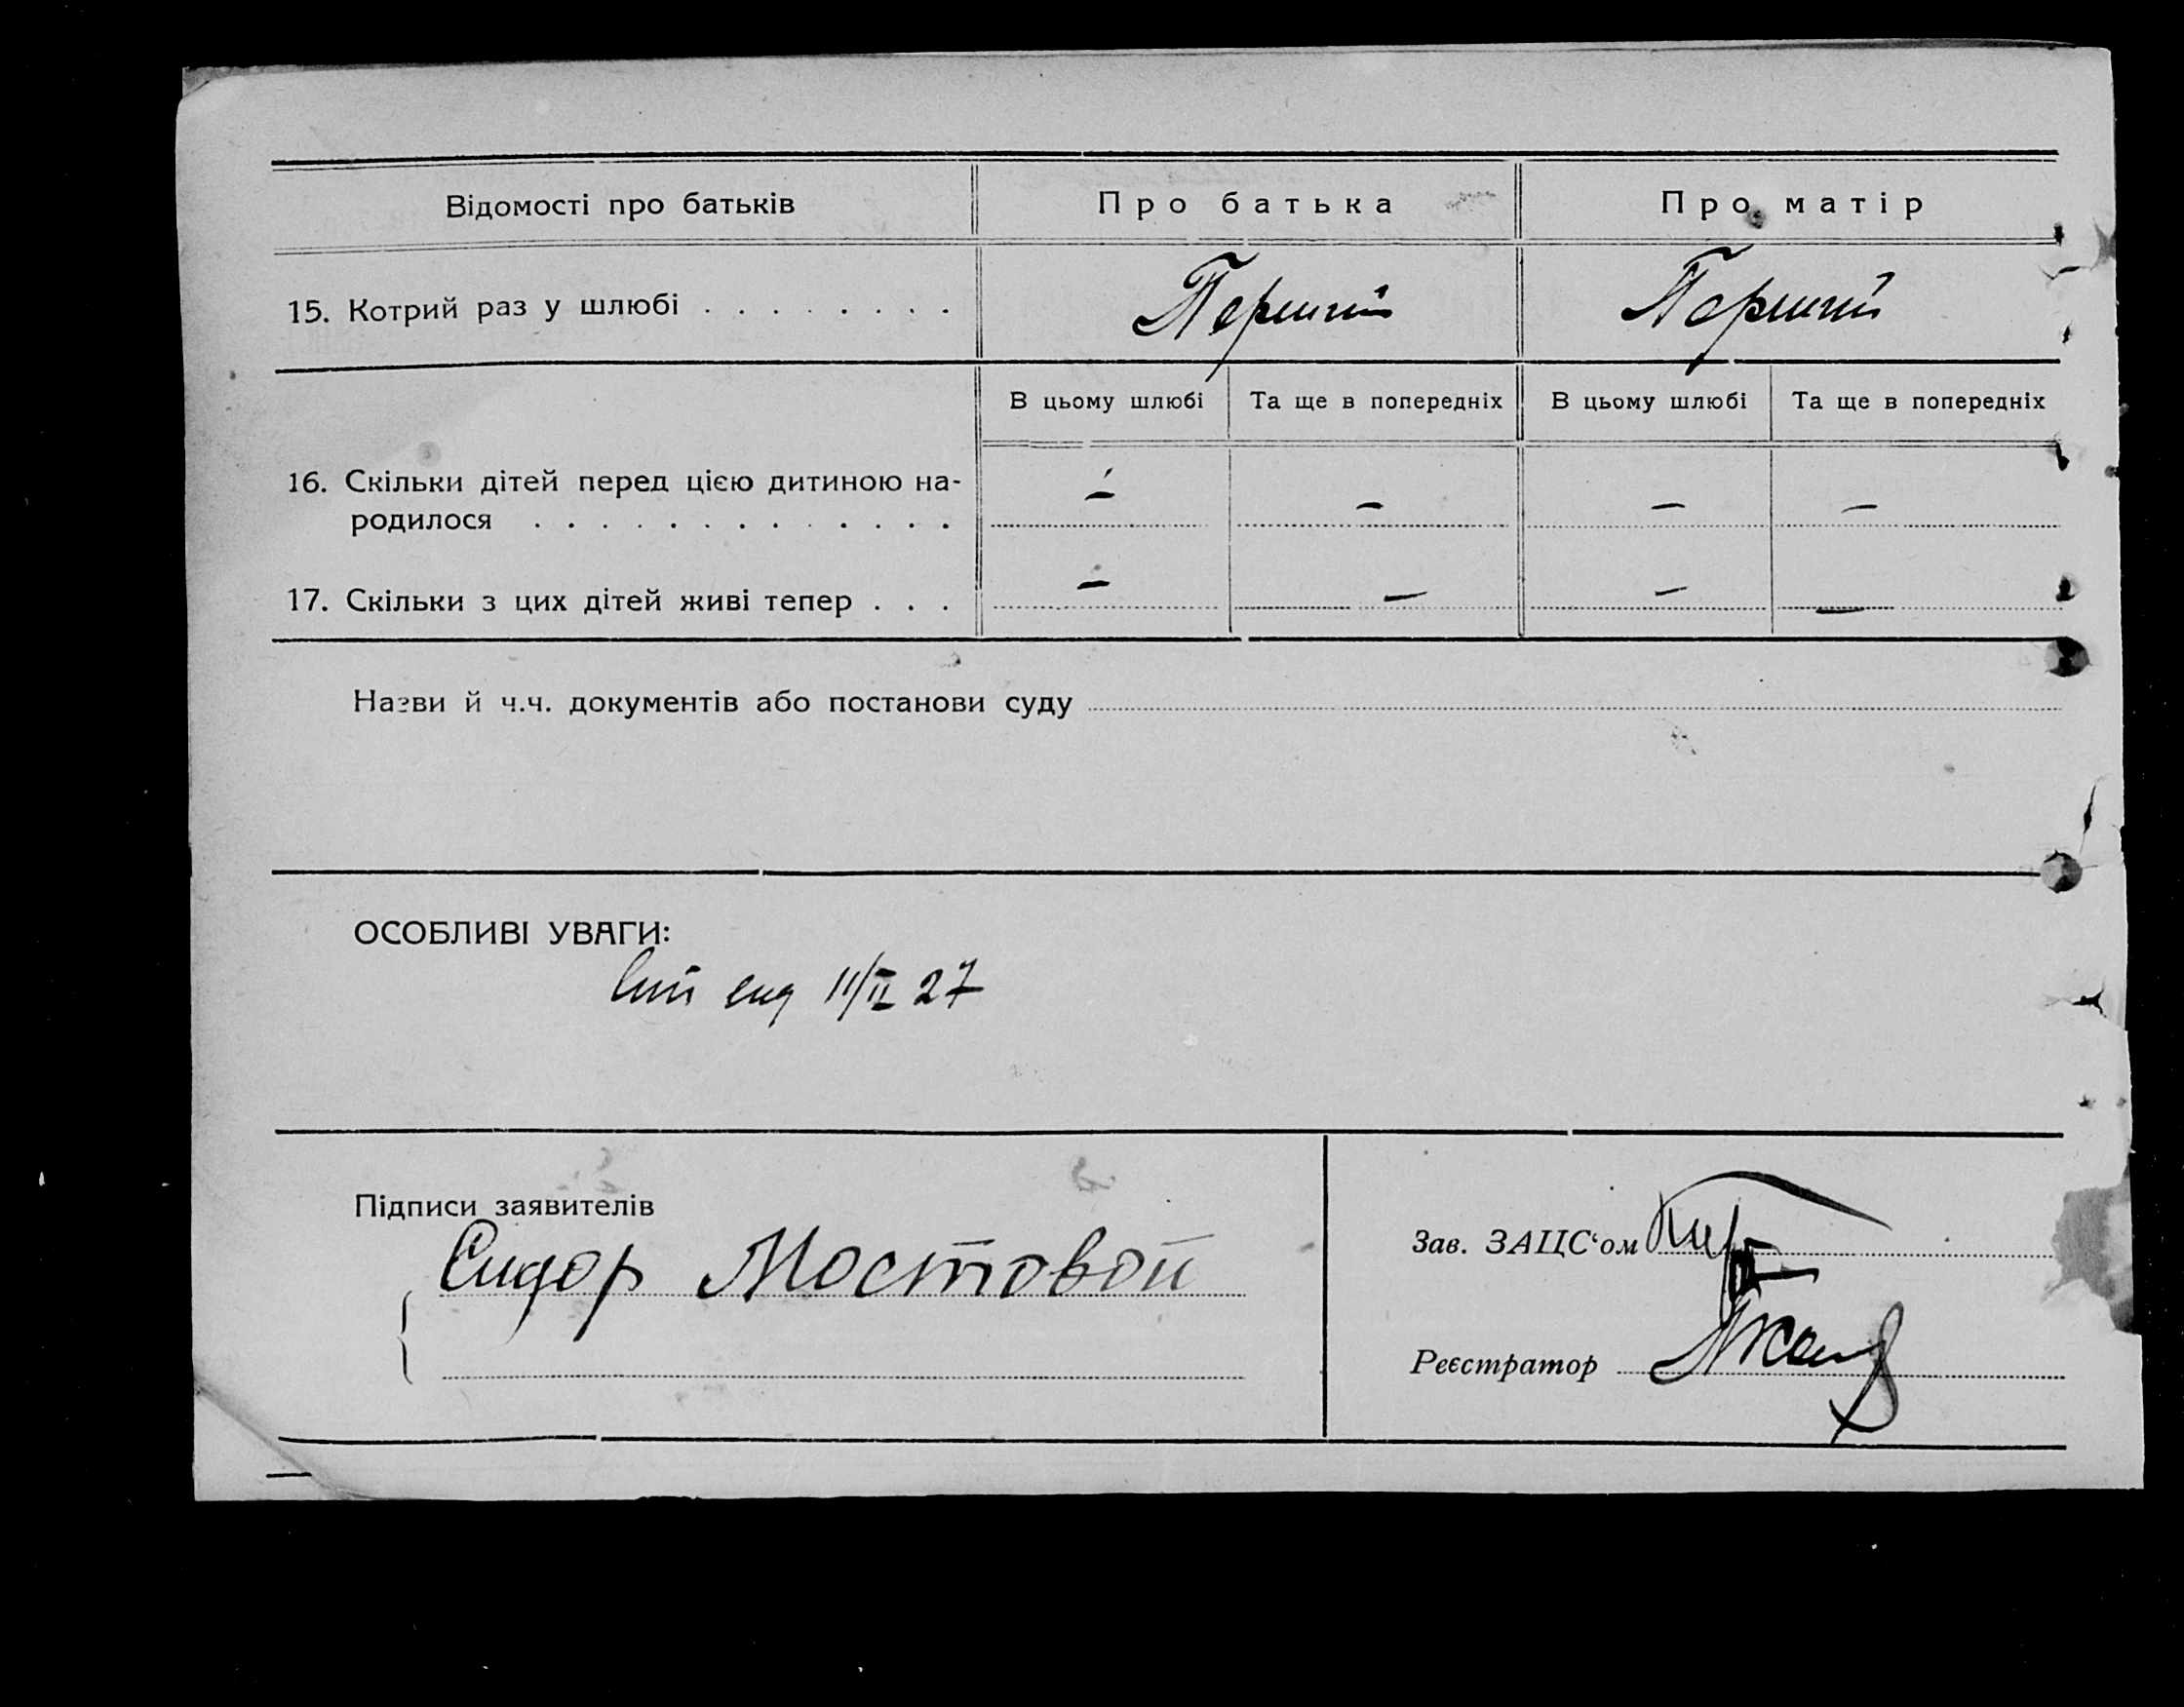 Відомості про батьків
Про батька
Про матір
15. Котрий раз у шлюбі . . . . . . . .
Перший
Перший
В цьому шлюбі
Та ще в попередніх
В цьому шлюбі
Та ще в попередніх
16. Скільки дітей перед цією дитиною на-
родилося . . . . . . . . . . . . .
– – – –
17. Скільки з цих дітей живі тепер . . .
– – – –
Назви й ч.ч. документів або постанови суду
ОСОБЛИВІ УВАГИ:
11/II 27
Підписи заявителів
Сидор Мостовой
Зав. ЗАЦС‘ом
Реєстратор